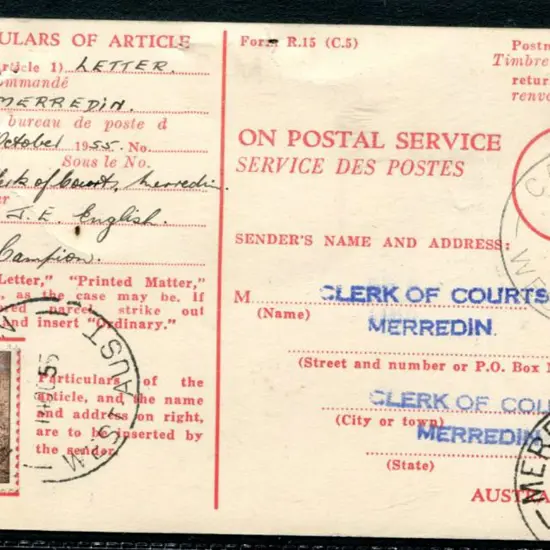 ULARS OF ARTICLE
rticle 1) LETTER.
ommandé
MERREDIN.
bureau de poste d
October 1955. No.
Sous le No.
lerk of Court, Merredin.
ur
J. E. English.
Campion.
Letter," "Printed Matter,"
, as the case may be. If
ered parcel strike out
and insert "Ordinary."
Particulars of the
article, and the name
and address on right,
are to be inserted by
the sender.
W. AUST
Form R.15 (C.5)
Postm
Timbre
return
renvo
ON POSTAL SERVICE
SERVICE DES POSTES
SENDER'S NAME AND ADDRESS:
M CLERK OF COURTS
(Name)
MERREDIN.
(Street and number or P.O. Box N
CLERK OF COU
(City or town)
MERREDIN
(State)
AUSTRA
MERR